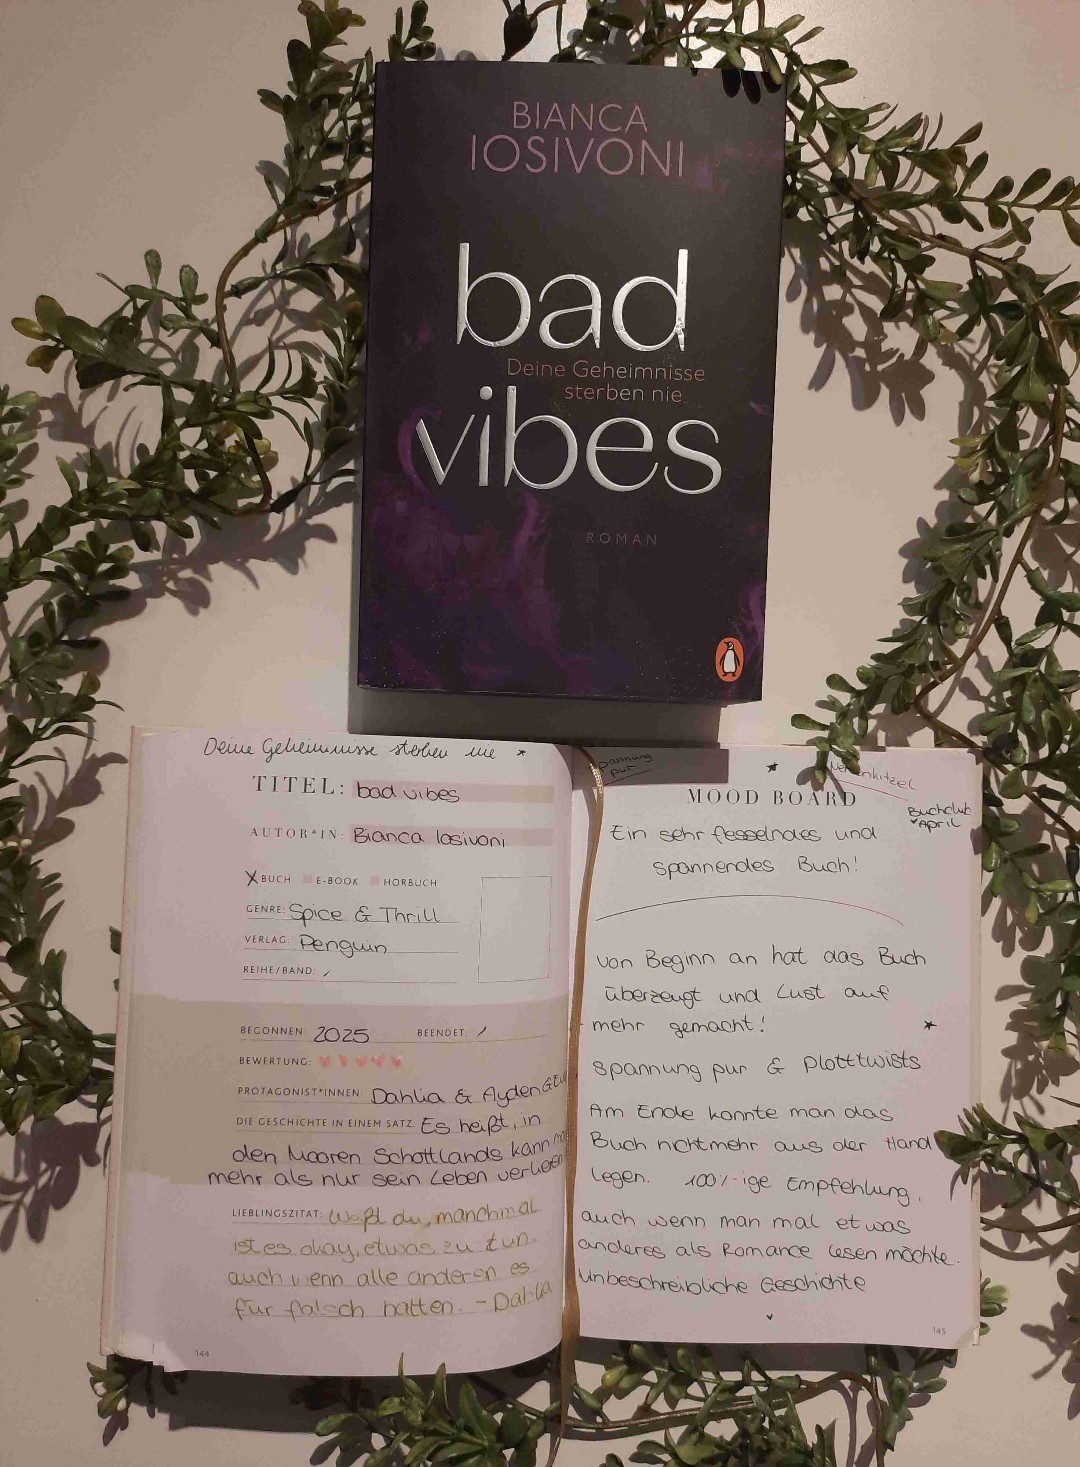 BIANCA
IOSIVONI
bad
Deine Geheimnisse
sterben nie
vibes
ROMAN
Deine Geheimnisse sterben nie
TITEL: bad vibes
AUTOR*IN: Bianca Iosivoni
X BUCH E-BOOK HÖRBUCH
GENRE: Spice & Thrill
VERLAG: Penguin
REIHE/BAND: /
BEGONNEN: 2025 BEENDET: /
BEWERTUNG:
PROTAGONIST*INNEN: Dahlia & Ayden &
DIE GESCHICHTE IN EINEM SATZ: Es heißt, in
den Mooren Schottlands kann
mehr als nur sein Leben verlieren
LIEBLINGSZITAT: Weißt du, manchmal
ist es okay, etwas zu tun,
auch wenn alle anderen es
für falsch halten. - Dahlia
144
Spannung
pur
Nervenkitzel
MOOD BOARD
Buchclub
April
Ein sehr fesselndes und
spannendes Buch!
Von Beginn an hat das Buch
überzeugt und Lust auf
mehr gemacht!
Spannung pur & Plotttwists
Am Ende konnte man das
Buch nichtmehr aus der Hand
legen. 100%-ige Empfehlung,
auch wenn man mal etwas
anderes als Romance lesen möchte.
Unbeschreibliche Geschichte
145